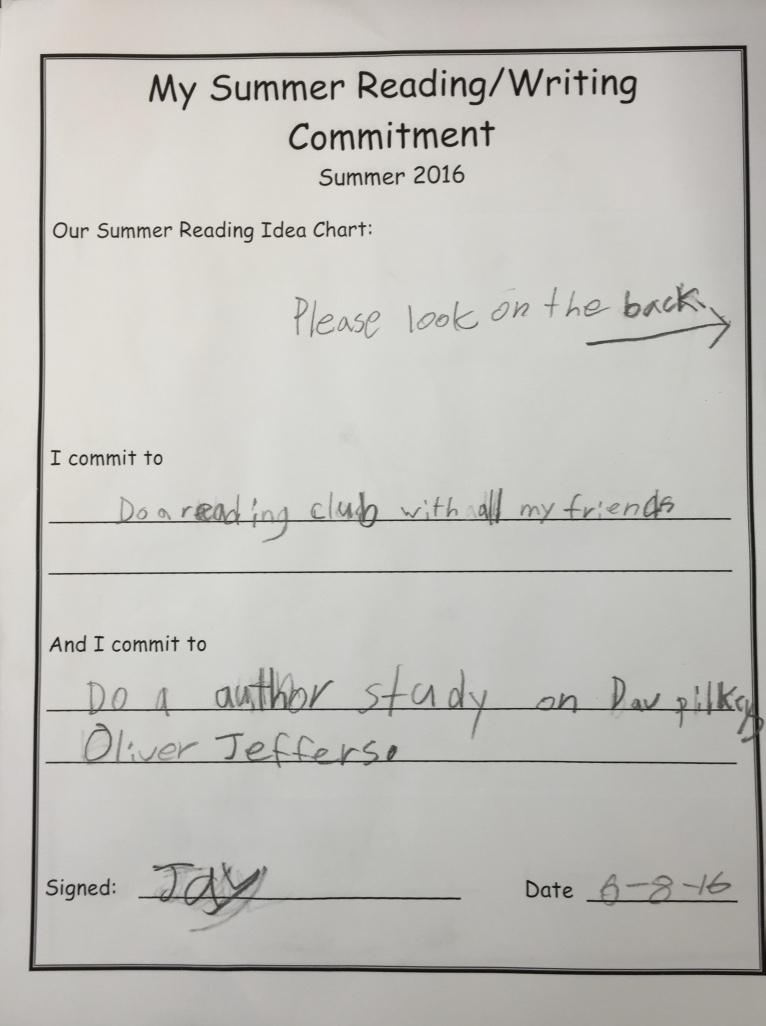 My Summer Reading/Writing
Commitment
Summer 2016
Our Summer Reading Idea Chart:
Please look on the back.
I commit to
Do a reading club with all my friends
And I commit to
Do a author study on Dav pilkey
Oliver Jeffers.
Signed: Jay Date 6-8-16